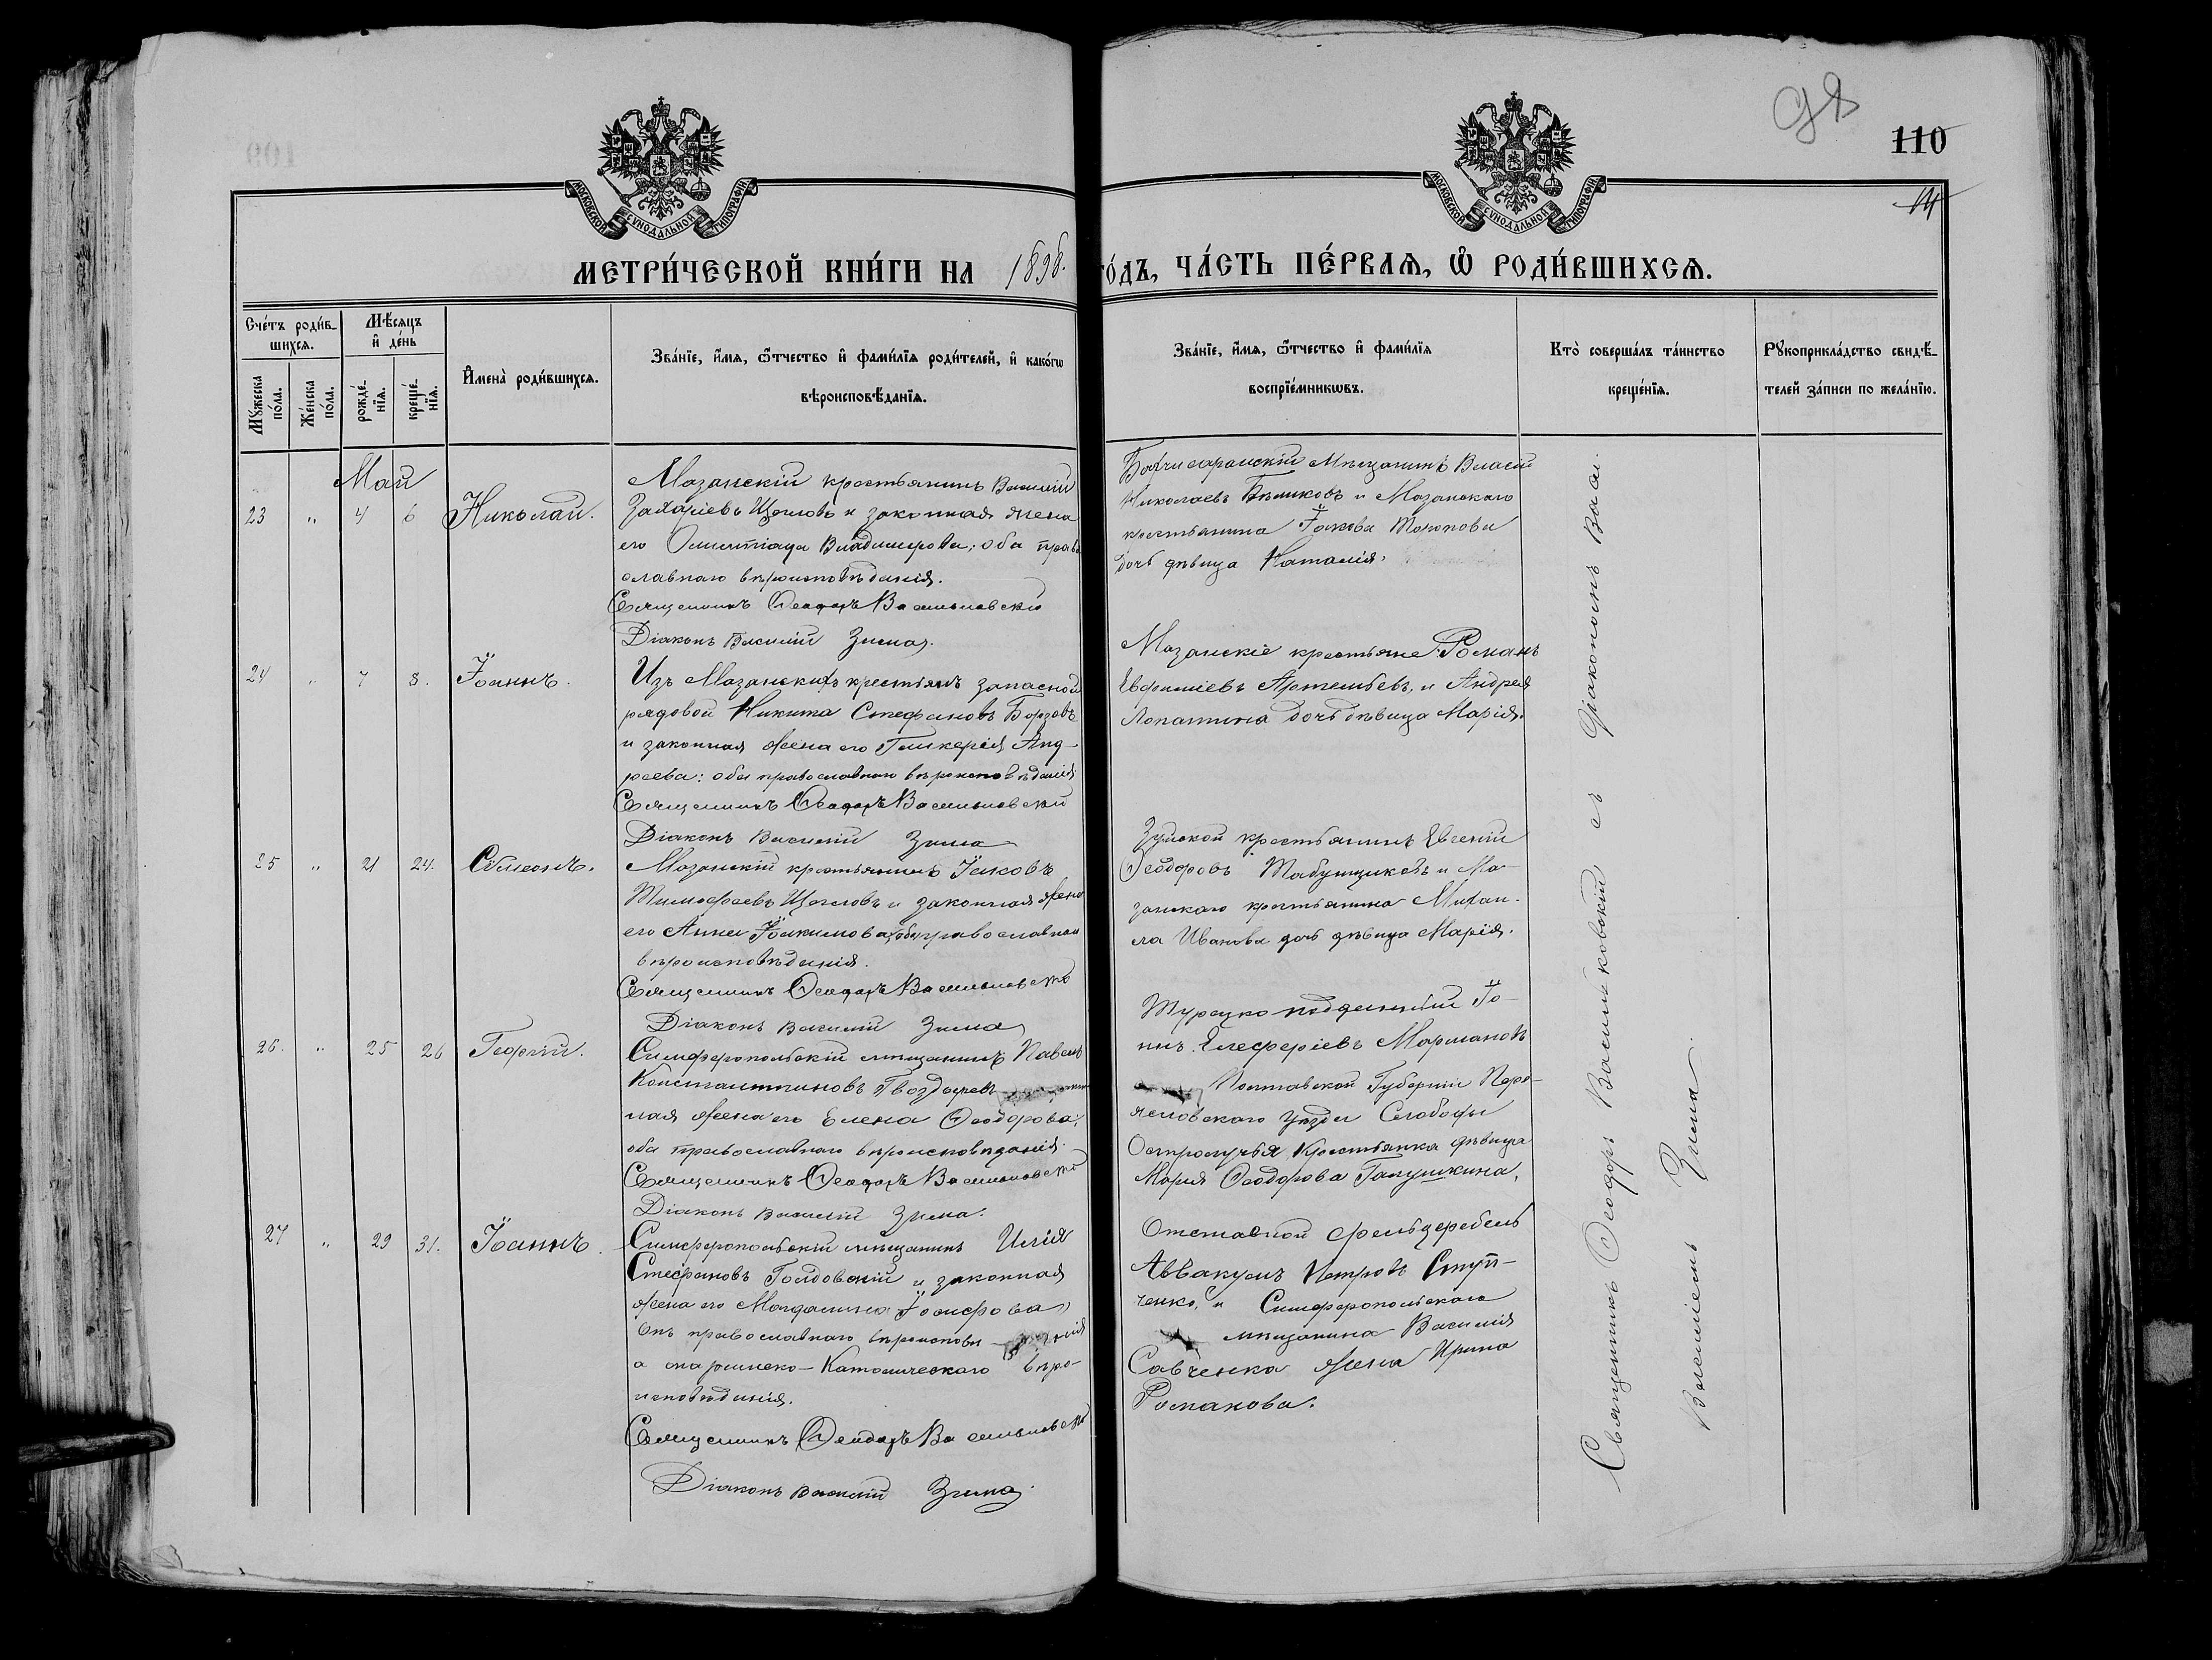 98
110
14
МОСКОВСКОЙ СУНОДАЛЬНОЙ ТИПОГРАФІИ
МОСКОВСКОЙ СУНОДАЛЬНОЙ ТИПОГРАФІИ
МЕТРИ́ЧЕСКОЙ КНИ́ГИ НА 1898.
го́дъ, ЧА́СТЬ ПЕ́РВАѦ, Ѡ҆ РОДИ́ВШИХСѦ.
Сче́тъ роди́в-
шихсѧ.
Мѣ́сѧцъ
и҆ де́нь
Мꙋ́жеска
по́ла.
Же́нска
по́ла.
рожде́-
нїѧ.
креще́-
нїѧ.
И҆мена̀ роди́вшихсѧ.
Зва́нїе, и҆́мѧ, ѻ҆́тчество и҆ фами́лїѧ роди́телей, и҆ како́гѡ
вѣроисповѣ́данїѧ.
Зва́нїе, и҆́мѧ, ѻ҆́тчество и҆ фами́лїѧ
воспрїе́мникѡвъ.
Кто̀ соверша́лъ та́инство
креще́нїѧ.
Рꙋкоприкла́дство свидѣ́-
телей за́писи по жела́нїю.
Май
23 " 4 6 Николай.
Мазанскій крестьянинъ Василій
Захаріевъ Щегловъ и законная жена
его Олимпіада Владимирова; оба право
славнаго вѣроисповѣданія.
Священникъ Ѳеодоръ Васильковскій
Діаконъ Василій Зима.
Бахчисарайскій Мѣщанинъ Власій
Николаевъ Бѣликовъ и Мазанскаго
крестьянина Іакова
дочь дѣвица Наталія.
24 " 7 8. Іоаннъ.
Изъ Мазанскихъ крестьянъ запасной
рядовой Никита Стефановъ Борзовъ
и законная жена его Гликерія Анд-
реева: оба православнаго вѣроисповѣданія
Священникъ Ѳеодоръ Васильковскій
Діаконъ Василій Зима
Мазанскіе крестьяне: Романъ
Евфиміевъ Артемьевъ, и Андрея
Лопатина дочь дѣвица Марія.
25 " 21 24. Сѵмеонъ.
Мазанскій крестьянинъ Іаковъ
Тимофеевъ Щегловъ и законная жена
его Анна Іоакимова; оба православнаго
вѣроисповѣданія.
Священникъ Ѳеодоръ Васильковскій
Діаконъ Василій Зима
Зуйской крестьянинъ Евгеній
Ѳеодоровъ Табунщиковъ и Ма-
занскаго крестьянина Михаи-
ла Иванова дочь дѣвица Марія.
26. " 25 26 Георгій.
Симферопольскій мѣщанинъ Павелъ
Константиновъ Гвоздыревъ
ная жена его Елена Ѳеодорова;
оба православнаго вѣроисповѣданія.
Священникъ Ѳеодоръ Васильковскій
Діаконъ Василій Зима.
Турецко-подданный Іо-
нъ Елефтеріевъ
Полтавской Губерніи Пере-
яславскаго уѣзда Слободы
крестьянка дѣвица
Марія Ѳеодорова Галушкина.
27 " 29 31. Іоаннъ.
Симферопольскій мѣщанинъ Илія
Стефановъ и законная
жена его Магдалина Іосифова;
онъ православнаго вѣроисповѣ-
а она римско-Католическаго вѣро-
исповѣданія.
Священникъ Ѳеодоръ Васильковскій
Діаконъ Василій Зима.
Отставной фельдфебель
Аввакумъ Петровъ Ступ-
ченко, и Симферопольскаго
мѣщанина Василія
Савченка жена Ирина
Романова.
Священникъ Ѳеодоръ Васильковскій съ Діакономъ Васи-
Василіемъ Зима.